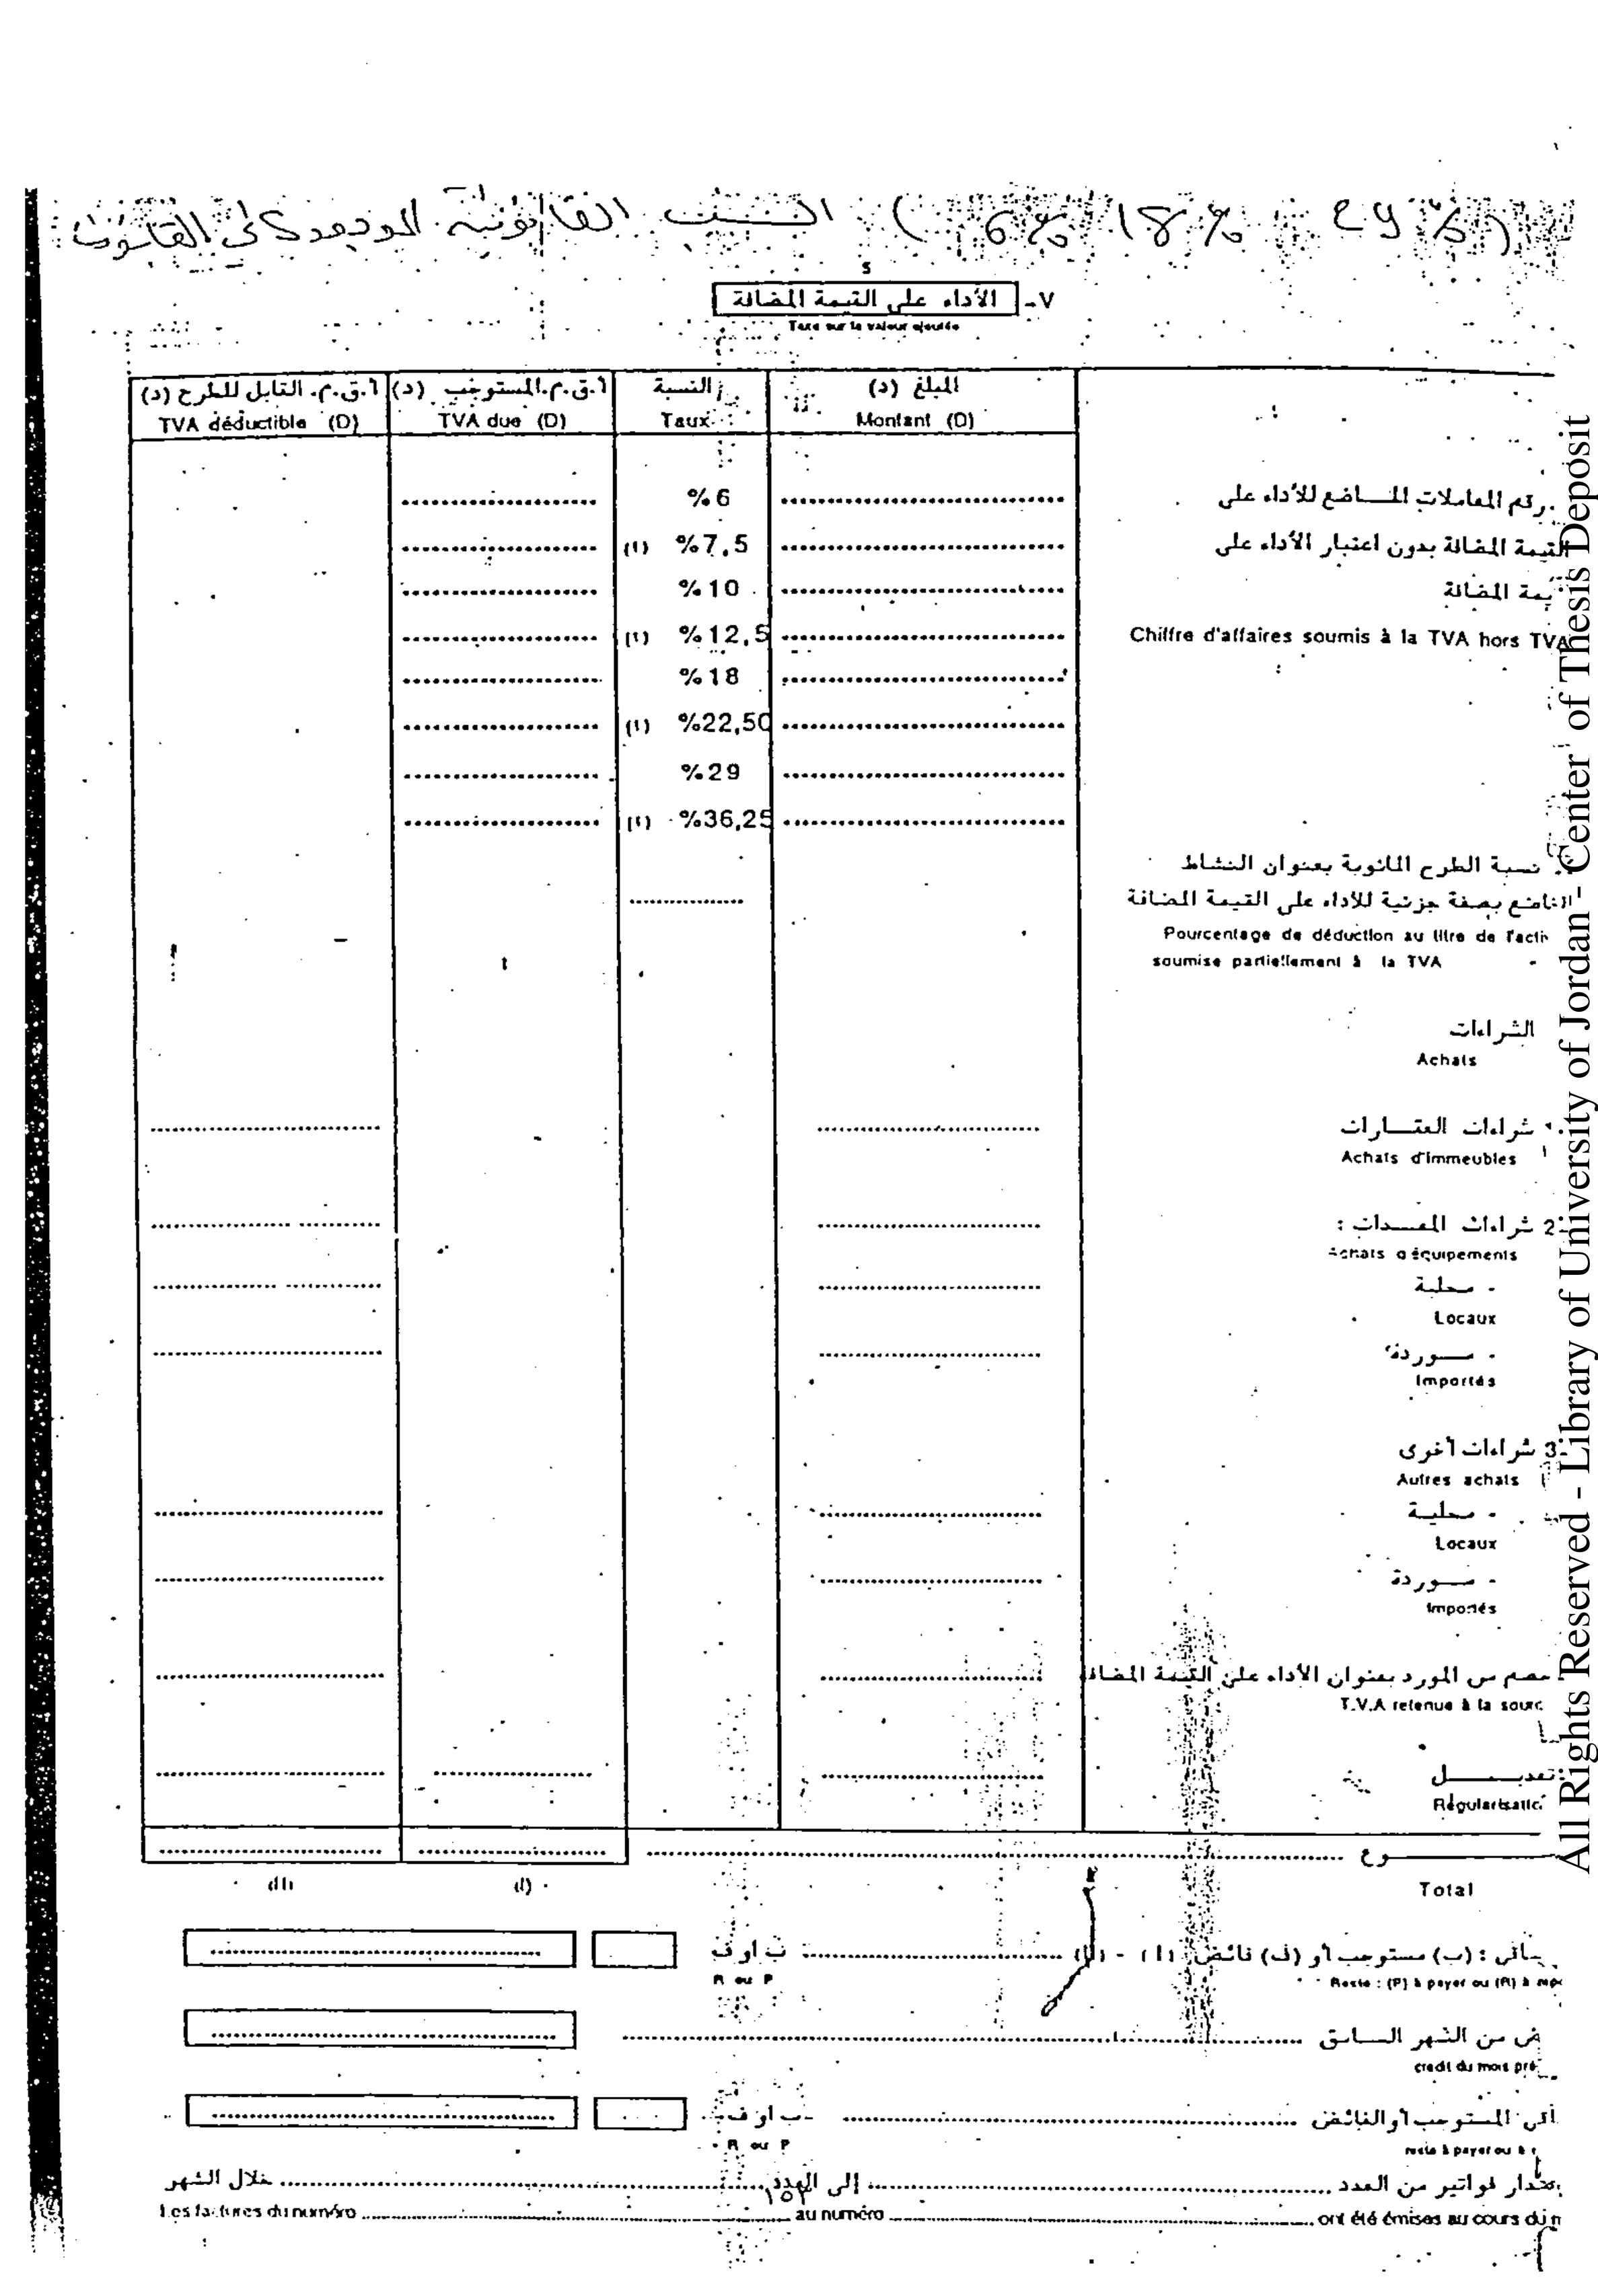 النسب القانونية الموجودة في القانون ( 6% 18% 29%)
5
V- الأداء على القيمة المضافة
Taxe sur la valeur ajoutée
المبلغ (د) النسبة أ.ق.م.المستوجب (د) أ.ق.م. القابل للطرح (د)
Montant (D) Taux TVA due (D) TVA déductible (D)
رقم المعاملات الخاضع للأداء على %6
القيمة المضافة بدون اعتبار الأداء على %7,5 (1)
يمة المضافة %10
Chiffre d'affaires soumis à la TVA hors TVA %12,5 (1)
%18
%22,50 (1)
%29
%36,25 (1)
نسبة الطرح المانوية بعنوان النشاط
الخاضع بصفة جزئية للأداء على القيمة المضافة
Pourcentage de déduction au titre de l'activ
soumise partiellement à la TVA
الشراءات
Achats
شراءات العقـــارات
Achats d'immeubles
2 شراءات المعـــدات :
Achats d'équipements
- محلية
Locaux
- مـــوردة
Importés
3 شراءات أخرى
Autres achats
- محلية
Locaux
- مـــوردة
Importés
خصم من المورد بعنوان الأداء على القيمة المضاف
T.V.A retenue à la sourc
تعديـــــل
Régularisatic
ـــــوع
Total
(I) (II)
باقي : (ب) مستوجب أو (ف) فائض (I) - (II) ب أو ف
Reste : (P) à payer ou (R) à rep R ou P
ض من الشهر السـابق
credit du mois pré
اقي المستوجب أو الفائض ب أو ف
reste à payer ou à r R ou P
إصدار فواتير من العدد إلى العدد خلال الشهر
١٥٢
Les factures du numéro au numéro ont été émises au cours du m
All Rights Reserved - Library of University of Jordan - Center of Thesis Deposit